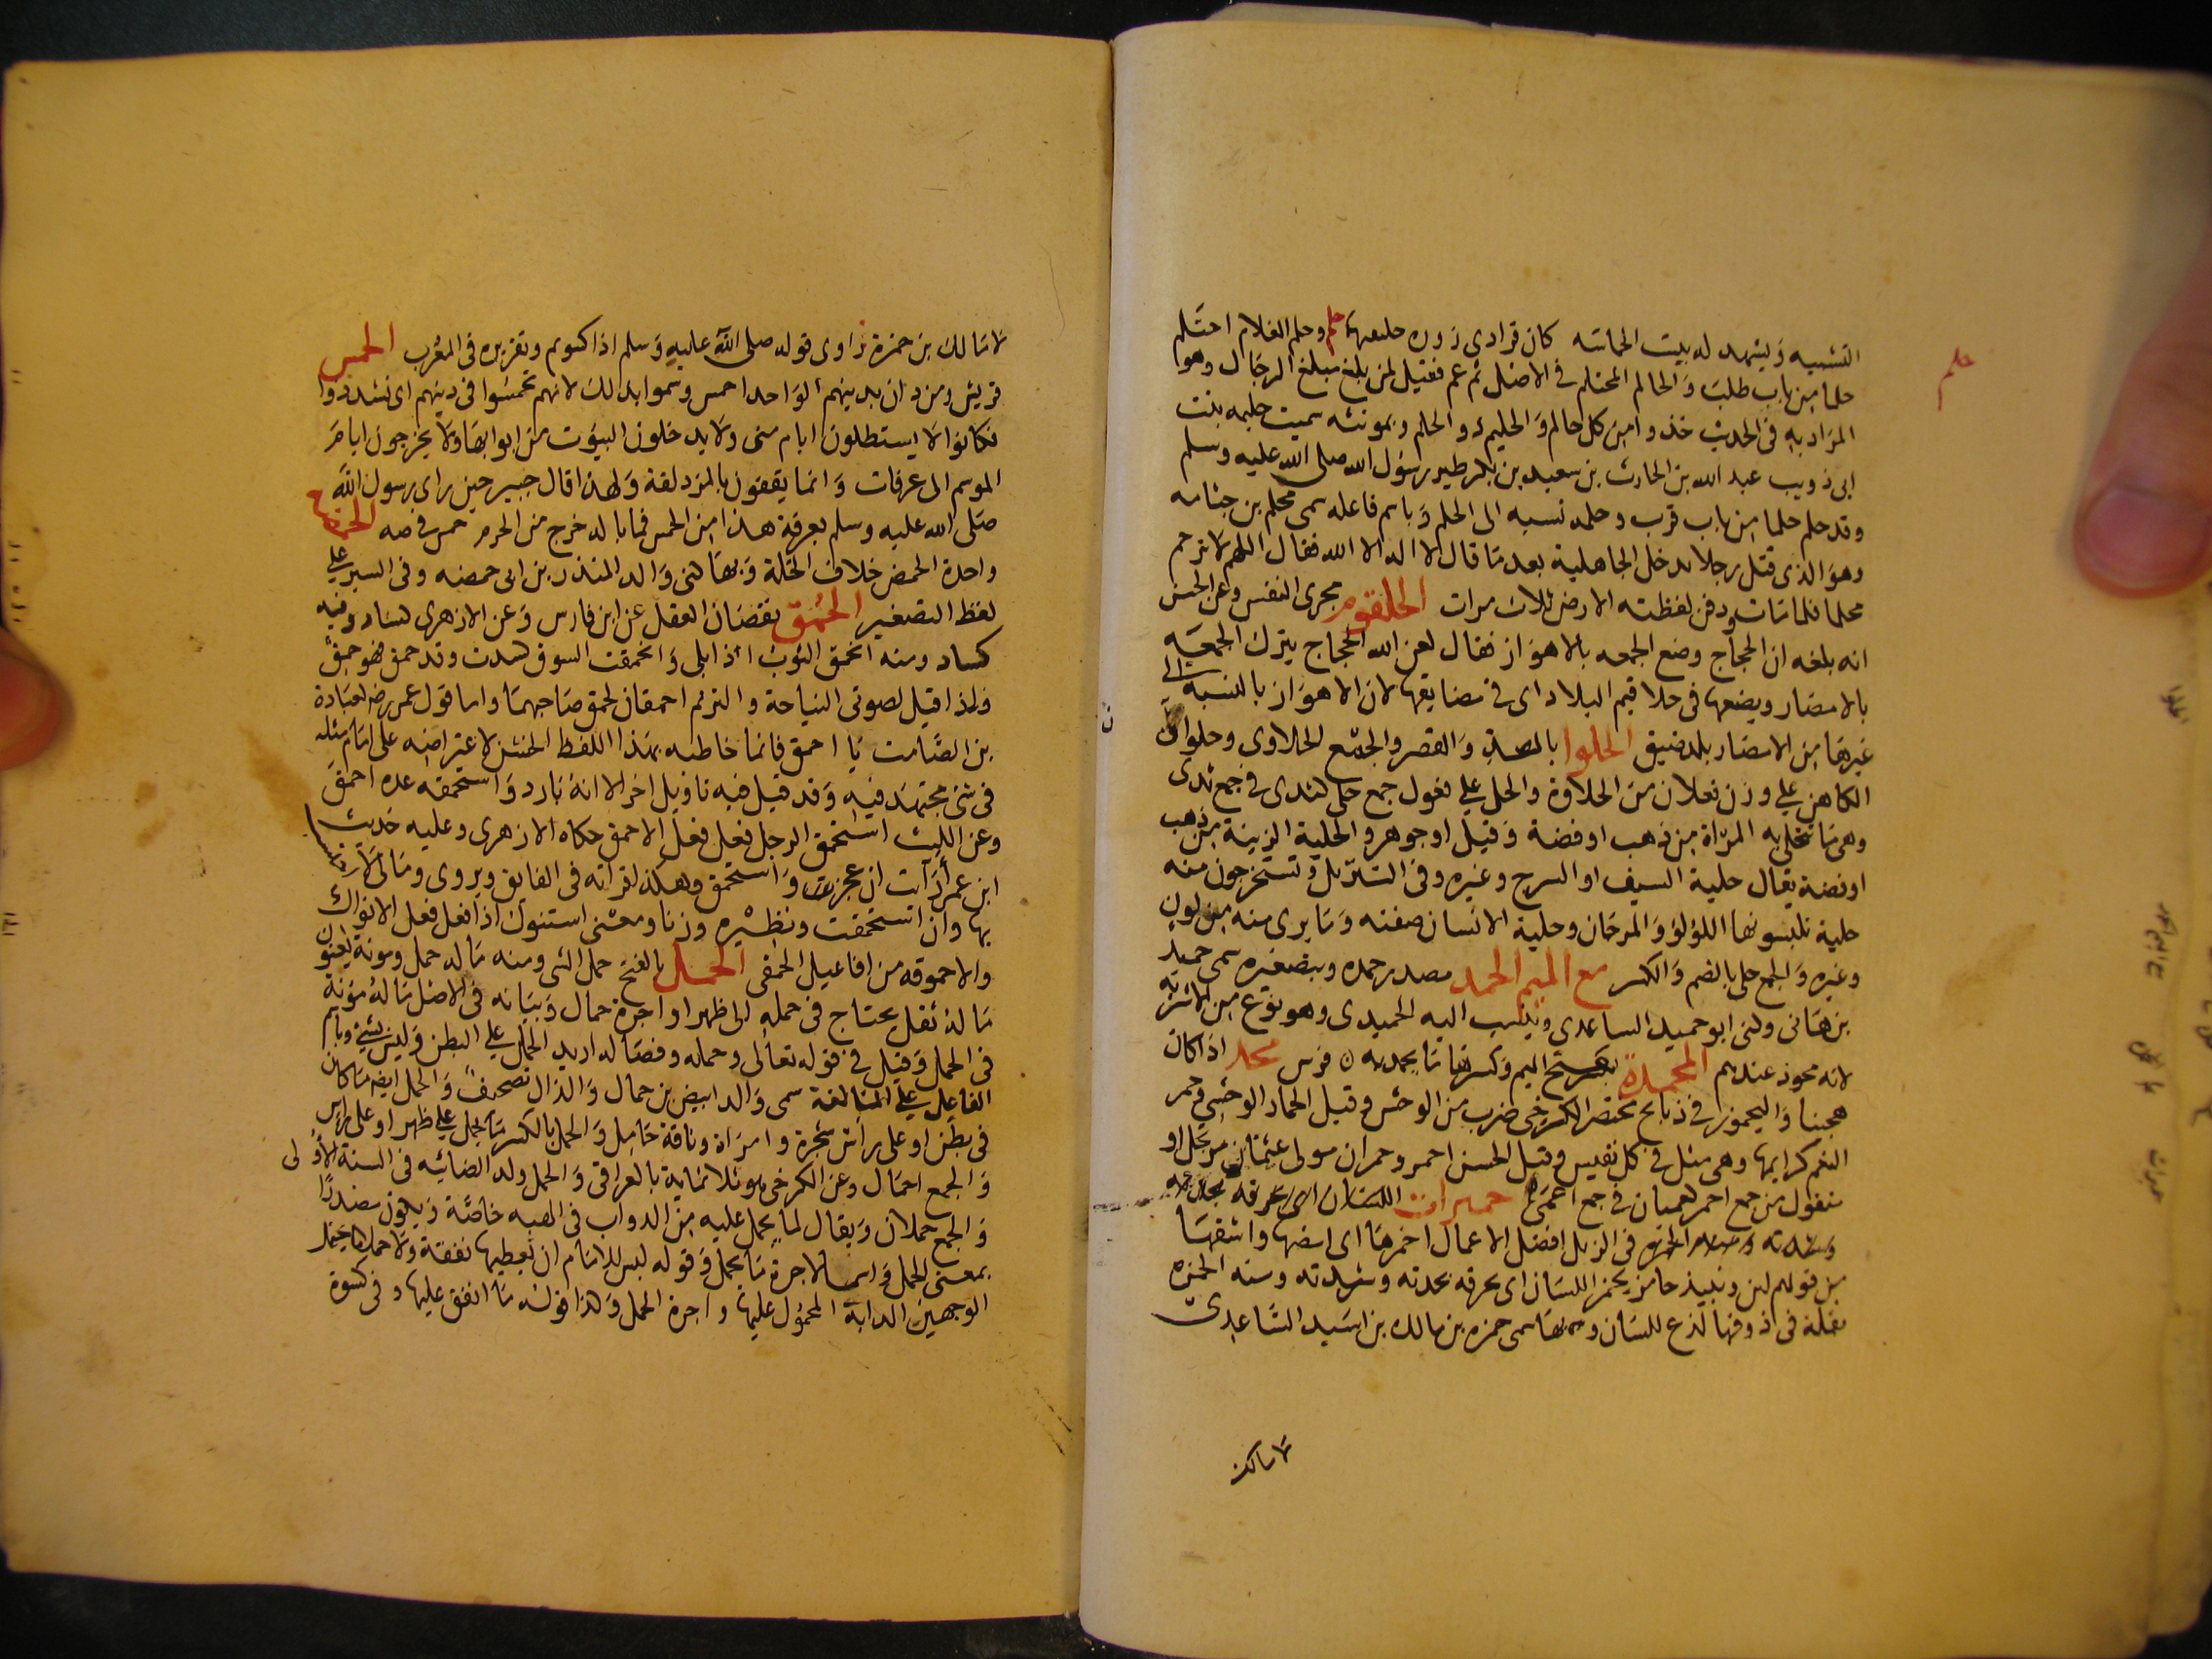 التشبيه ويشهد له بيت الحماسه كان قرادى زوره حلم وحلم الغلام احتلم
حلما من باب طلب والحالم المحتلم فى الاصل ثم عم فقيل لمن بلغ مبلغ الرجال وهو
المراد به فى الحديث خذوا من كل حالم والحليم ذو الحلم وبمونثه سميت حليمه بنت
ابى ذويب عبد الله بن الحارث بن سعيد بن بكر ظير رسول الله صلى الله عليه وسلم
وقد حلم حلما من باب قرب وحلمه نسبه الى الحلم وباسم فاعله سمى محلم بن جثامه
وهو الذى قتل رجلا بدخل الجاهلية بعد ما قال لا اله الا الله فقال اللهم لا ترحم
محلما فلما مات ودفن لفظته الارض ثلاث مرات الحلقوم مجرى النفس وعن الحسن
انه بلغه ان الحجاج وضع الجمعه بالاهواز فقال لعن الله الحجاج يترك الجمعه
بالامصار ويضعها فى حلاقيم البلاد اى فى مضايقها لان الاهواز بالنسبه الى
غيرها من الامصار بلد ضيق الحلوا بالمد والقصر والجمع الحلاوى وحلوان
الكاهن على وزن فعلان من الحلاوة والحلى على فعول جمع حلى كثدى فى جمع ثدى
وهى ما تتحلى به المراة من ذهب او فضة وقيل او جوهر والحلية الزينة من ذهب
او فضة يقال حلية السيف او السرج وغيره وفى التنزيل وتستخرجون منه
حلية تلبسونها اللؤلؤ والمرجان وحلية الانسان صفته وما يرى منه من لون
وغيره والجمع حلى بالضم والكسر مع الميم الحمد مصدر حمده وبتصغيره سمى حميد
بن هانى وكنى ابو حميد الساعدى وينسب اليه الحميدى وهو نوع من الاشربة
لانه محمود عندهم المحمدة بفتح الميم وكسرها ما يحمد به فرس محمر اذا كان
هجينا واليحمور فى ذبايح مختصر الكرخى ضرب من الوحش وقيل الحمار الوحشى وحمر
النعم كرايمها وهى مثل فى كل نفيس وقيل الحسن احمر وحمران مولى عثمان مرتجل او
منقول من جمع احمر كعميان فى جمع اعمى حمز اللسان اى عرقه بحدته
وشدته فى الزبل افضل الاعمال احمزها اى امضها واشقها
من قولهم لبن ونبيذ حامز يحمز اللسان اى يحرقه بحدته وشدته ومنه الحمزه
بقلة فى ذوقها لذع للسان وبها سمى حمزه بن مالك بن اسيد الساعدى
لا مالك
حلم
لا مالك بن حمزة راوى قوله صلى الله عليه وسلم اذا اكثبوكم وتقريره فى المغرب الحمس
قريش ومن دان بدينهم الواحد احمس وسموا بذلك لانهم تحمسوا فى دينهم اى تشددوا
فكانوا لا يستظلون ايام منى ولا يدخلون البيوت من ابوابها ولا يخرجون ايام
الموسم الى عرفات وانما يقفون بالمزدلفة ولهذا قال جبير حين راى رسول الله
صلى الله عليه وسلم بعرفة هذا من الحمس فما باله خرج من الحرم حمس فى صه الحمضة
واحدة الحمض خلاف الخلة وبها كنى والد المنذر بن ابى حمضه وفى السير على
لفظ التصغير الحمق نقصان العقل عن ابن فارس وعن الازهرى فساد وفيه
كساد ومنه انحمق الثوب اذا بلى وانحمقت السوق كسدت وقد حمق فهو حمق
ولذا قيل لصوتى النياحة والترنم احمقان لحمق صاحبهما واما قول عمر رضه لعبادة
بن الصامت يا احمق فانما خاطبه بهذا اللفظ الخشن لاعتراضه على امام مثله
فى شئ مجتهد فيه وقد قيل فيه تاويل اخر الا انه بارد واستحمقه عده احمق
وعن الليث استحمق الرجل فعل فعل الاحمق حكاه الازهرى وعليه حديث
ابن عمر أرايت ان عجز واستحمق وهكذا قراته فى الفايق ويروى ومالى لا
بها وان استحمقت ونظيره وزنا ومعنى استنوك اذا فعل فعل الانواك
والاحموقه من افاعيل الحمقى الحمل بالفتح حمل الشى ومنه ما له حمل ومونة يعنون
ما له ثقل يحتاج فى حمله الى ظهر او اجرة حمال وبيانه فى الاصل ما له مؤنة
فى الحمل وقيل فى قوله تعالى وحمله وفصاله اريد الحمل على البطن وليس بشئ وباسم
الفاعل على المبالغة سمى والد ابيض بن حمال والذال تصحيف والحمل ايضا ما كان
فى بطن او على راس شجرة وامراة وناقة حامل والحمل بالكسر ما يحمل على ظهر او على راس
والجمع احمال وعن الكرخى هو ثلاثماية بالعراقى والحمل ولد الضائنه فى السنة الاولى
والجمع حملان ويقال لما يحمل عليه من الدواب فى الهبه خاصة ويكون مصدرا
بمعنى الحمل واسما لاجرة ما يحمل وقوله ليس للامام ان يعطيها نفقة ولا حملانا يحتمل
الوجهين الدابة المحمول عليها واجرة الحمل وهذا قوله ما انفق عليها وفى كسوة